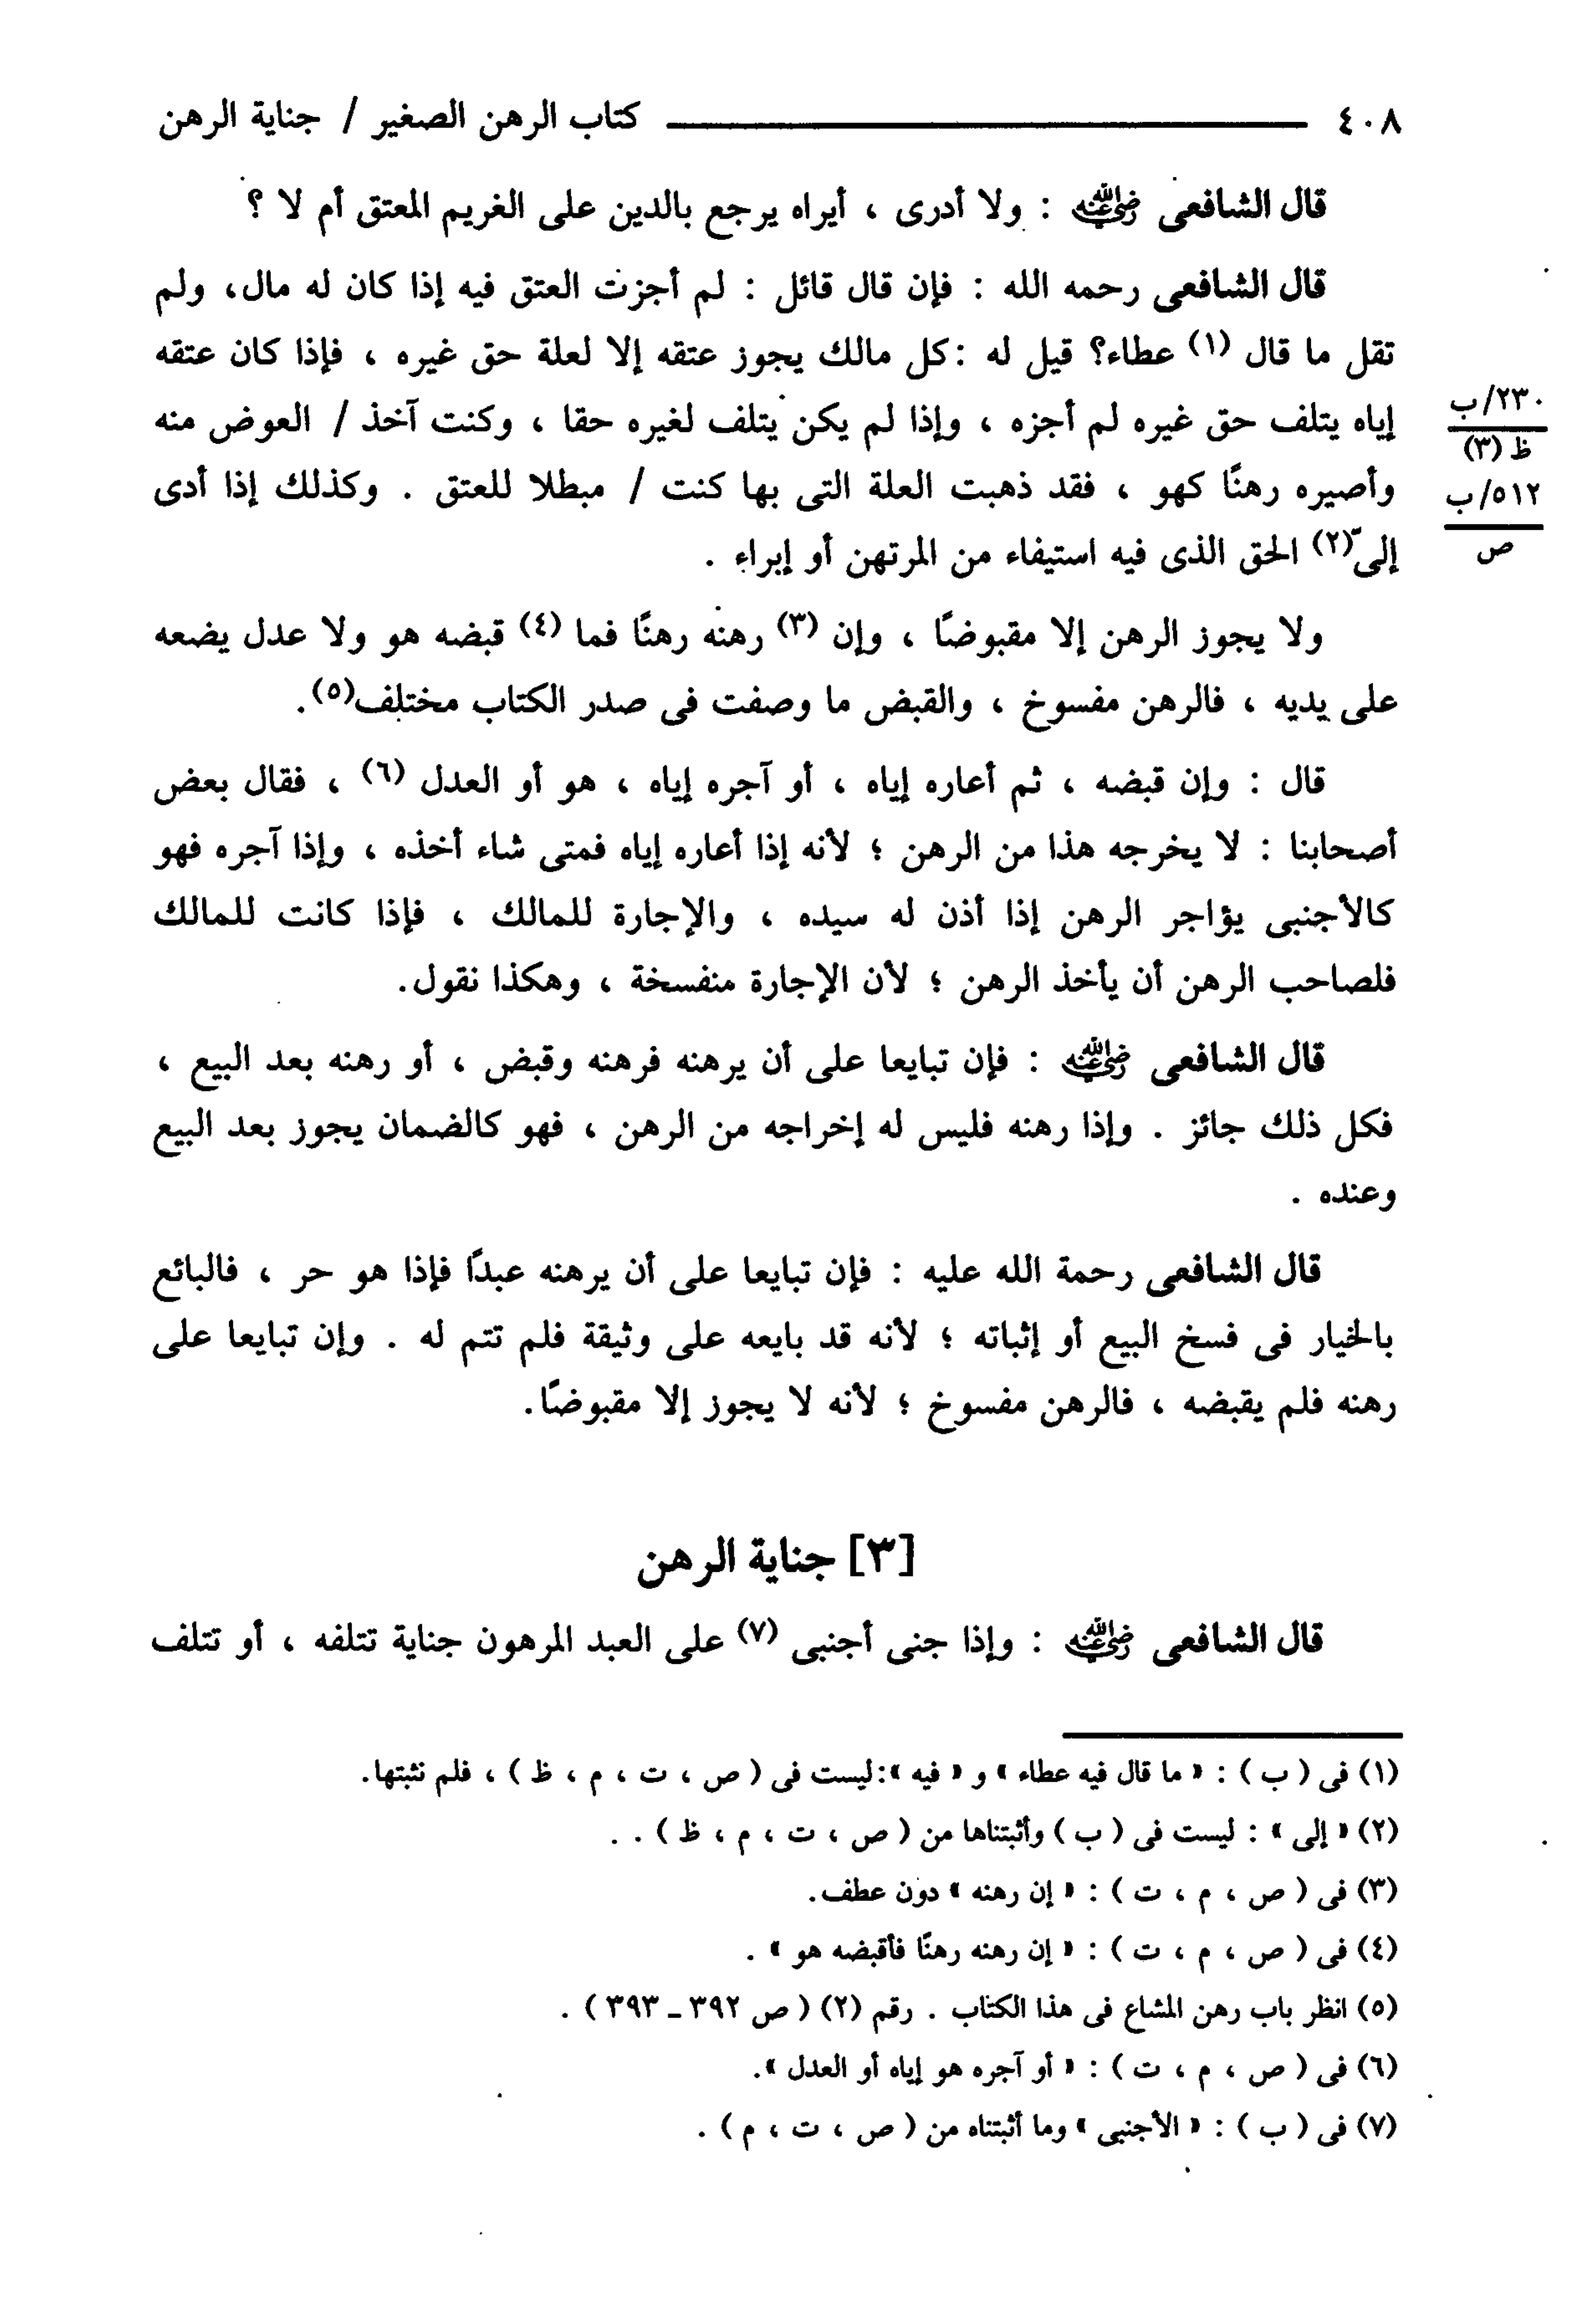 ٤٠٨ كتاب الرهن الصغير / جناية الرهن
قال الشافعى رضي الله عنه : ولا أدرى ، أيراه يرجع بالدين على الغريم المعتق أم لا ؟
قال الشافعى رحمه الله : فإن قال قائل : لم أجزت العتق فيه إذا كان له مال، ولم
تقل ما قال (١) عطاء؟ قيل له : كل مالك يجوز عتقه إلا لعلة حق غيره ، فإذا كان عتقه
إياه يتلف حق غيره لم أجزه ، وإذا لم يكن يتلف لغيره حقا ، وكنت آخذ / العوض منه
٢٣٠/ب
ظ (٣)
وأصيره رهنًا كهو ، فقد ذهبت العلة التى بها كنت / مبطلا للعتق . وكذلك إذا أدى
٥١٢/ب
ص
إلى(٢) الحق الذى فيه استيفاء من المرتهن أو إبراء .
ولا يجوز الرهن إلا مقبوضًا ، وإن (٣) رهنه رهنًا فما (٤) قبضه هو ولا عدل يضعه
على يديه ، فالرهن مفسوخ ، والقبض ما وصفت فى صدر الكتاب مختلف(٥).
قال : وإن قبضه ، ثم أعاره إياه ، أو آجره إياه ، هو أو العدل (٦) ، فقال بعض
أصحابنا : لا يخرجه هذا من الرهن ؛ لأنه إذا أعاره إياه فمتى شاء أخذه ، وإذا آجره فهو
كالأجنبى يؤاجر الرهن إذا أذن له سيده ، والإجارة للمالك ، فإذا كانت للمالك
فلصاحب الرهن أن يأخذ الرهن ؛ لأن الإجارة منفسخة ، وهكذا نقول.
قال الشافعى رضي الله عنه : فإن تبايعا على أن يرهنه فرهنه وقبض ، أو رهنه بعد البيع ،
فكل ذلك جائز . وإذا رهنه فليس له إخراجه من الرهن ، فهو كالضمان يجوز بعد البيع
وعنده .
قال الشافعى رحمة الله عليه : فإن تبايعا على أن يرهنه عبدًا فإذا هو حر ، فالبائع
بالخيار فى فسخ البيع أو إثباته ؛ لأنه قد بايعه على وثيقة فلم تتم له . وإن تبايعا على
رهنه فلم يقبضه ، فالرهن مفسوخ ؛ لأنه لا يجوز إلا مقبوضًا.
[٣] جناية الرهن
قال الشافعى رضي الله عنه : وإذا جنى أجنبى (٧) على العبد المرهون جناية تتلفه ، أو تتلف
(١) فى ( ب ) : « ما قال فيه عطاء » و « فيه »: ليست فى ( ص ، ت ، م ، ظ ) ، فلم نثبتها.
(٢) « إلى » : ليست فى ( ب ) وأثبتناها من ( ص ، ت ، م ، ظ ) . .
(٣) فى ( ص ، م ، ت ) : « إن رهنه » دون عطف.
(٤) فى ( ص ، م ، ت ) : « إن رهنه رهنًا فأقبضه هو » .
(٥) انظر باب رهن المشاع فى هذا الكتاب . رقم (٢) ( ص ٣٩٢ ـ ٣٩٣ ) .
(٦) فى ( ص ، م ، ت ) : « أو آجره هو إياه أو العدل ».
(٧) فى ( ب ) : « الأجنبى » وما أثبتناه من ( ص ، ت ، م ) .